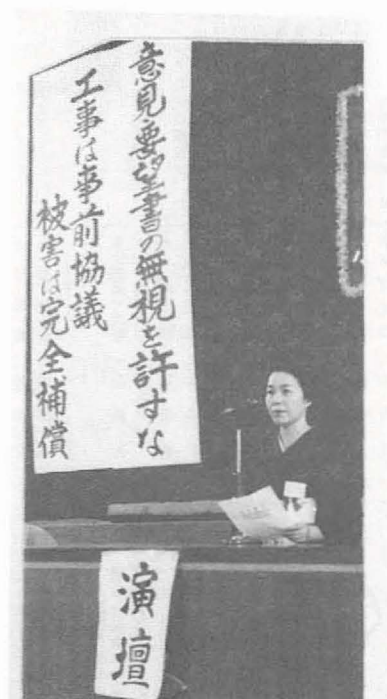 意見要望書の無視を許すな
工事は事前協議
被害は完全補償
演壇